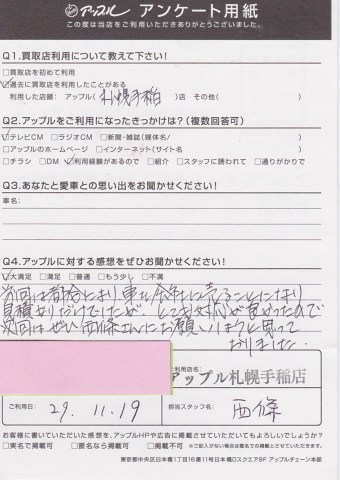 アップル アンケート用紙
この度は当店をご利用いただきありがとうございました。
Q1.買取店利用について教えて下さい!
□買取を初めて利用
☑過去に買取店を利用したことがある
利用した店舗: アップル(札幌手稲)店 その他( )
Q2.アップルをご利用になったきっかけは?(複数回答可)
☑テレビCM □ラジオCM □新聞・雑誌(媒体名/ )
□アップルのホームページ □インターネット(サイト名 )
□チラシ □DM ☑利用経験があるので □紹介 □スタッフに誘われて □通りがかりで
Q3.あなたと愛車との思い出をお聞かせください!
車名:
Q4.アップルに対する感想をぜひお聞かせください!
☑大満足 □満足 □普通 □もう少し □不満
前回は都合により車を会社に売ることになり
見積もりだけでしたが、とても対応が良かったので
次回はぜひ西條さんにお願いしようと思って
おりました。
ご利用店名:
アップル札幌手稲店
ご利用日: 29.11.19
担当スタッフ名: 西條
お客様に書いていただいた感想を、アップルHPや広告に掲載させていただいてもよろしいでしょうか?
□実名で掲載可 □匿名なら掲載可 □掲載不可 ※ご記入がない場合は匿名での掲載とさせていただきます。
東京都中央区日本橋1丁目16番11号日本橋DスクエアBF アップルチェーン本部